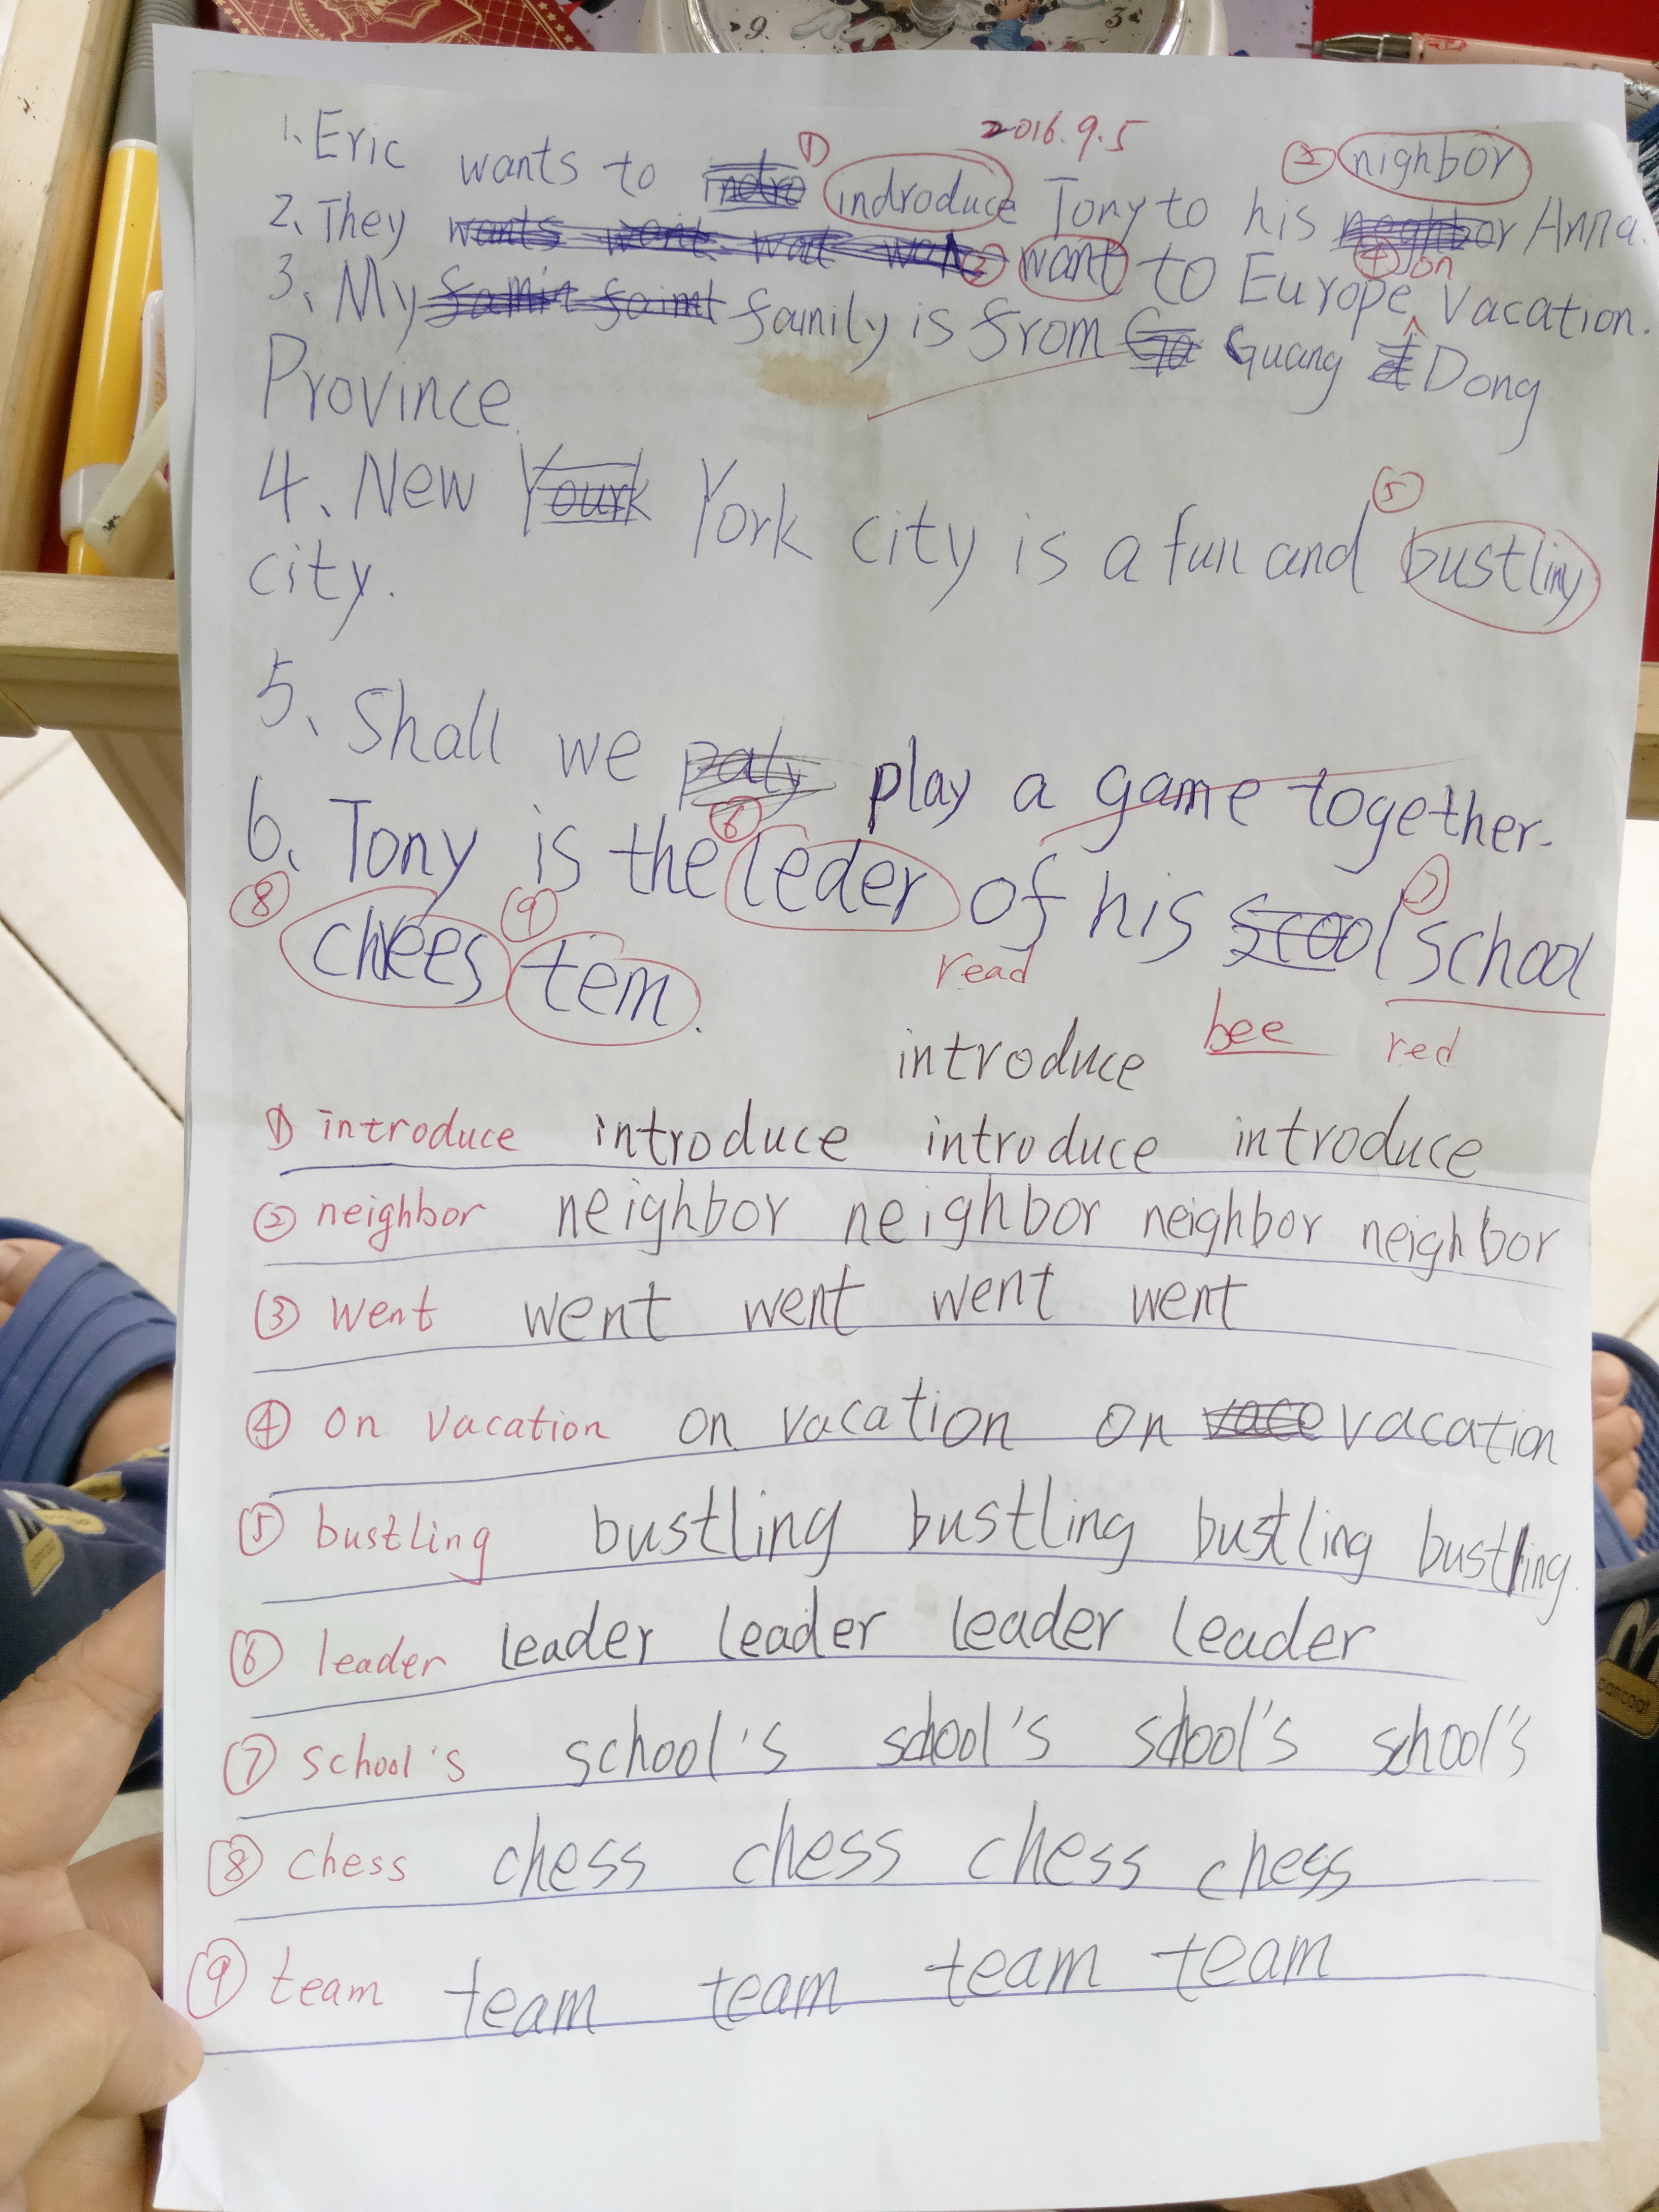 9 3
2016.9.5
1. Eric wants to ① indroduce Tony to his ② nighbor Anna.
2. They ③ want to Europe ④ on vacation.
3、My faimily is from Guang Dong
Province
4、New York city is a fun and ⑤ bustliny
city.
5、Shall we play a game together.
6、Tony is the ⑥ leder of his ⑦ school
⑧ chees ⑨ tem.
read bee red
introduce
① introduce introduce introduce introduce
② neighbor neighbor neighbor neighbor neighbor
③ went went went went went
④ on vacation on vacation on vacation
⑤ bustling bustling bustling bustling bustling.
⑥ leader leader leader leader leader
⑦ school's school's school's school's school's
⑧ chess chess chess chess chess
⑨ team team team team team
pancoat